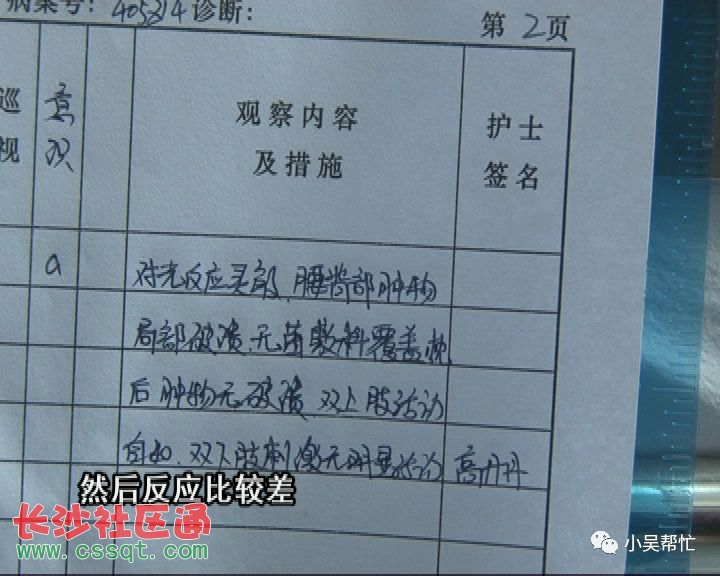 病案号: 405214 诊断:
第 2 页
巡视
意识
观察内容
及措施
护士
签名
a
对光反应灵敏、腰背部肿物
局部破溃、无菌敷料覆盖、枕
后肿物无破溃 双上肢活动
自如、双下肢刺激无明显活动 高丹丹
然后反应比较差
长沙社区通
www.cssqt.com
小吴帮忙